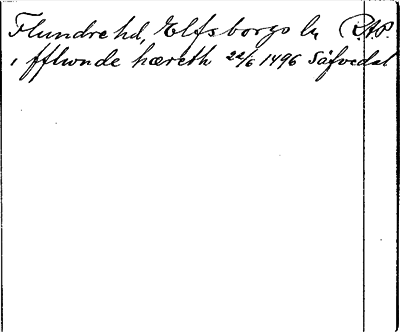 Flundre hd, Elfsborgs ln R.A.P.
i fflwnde hæreth 22/6 1496 Säfvedal